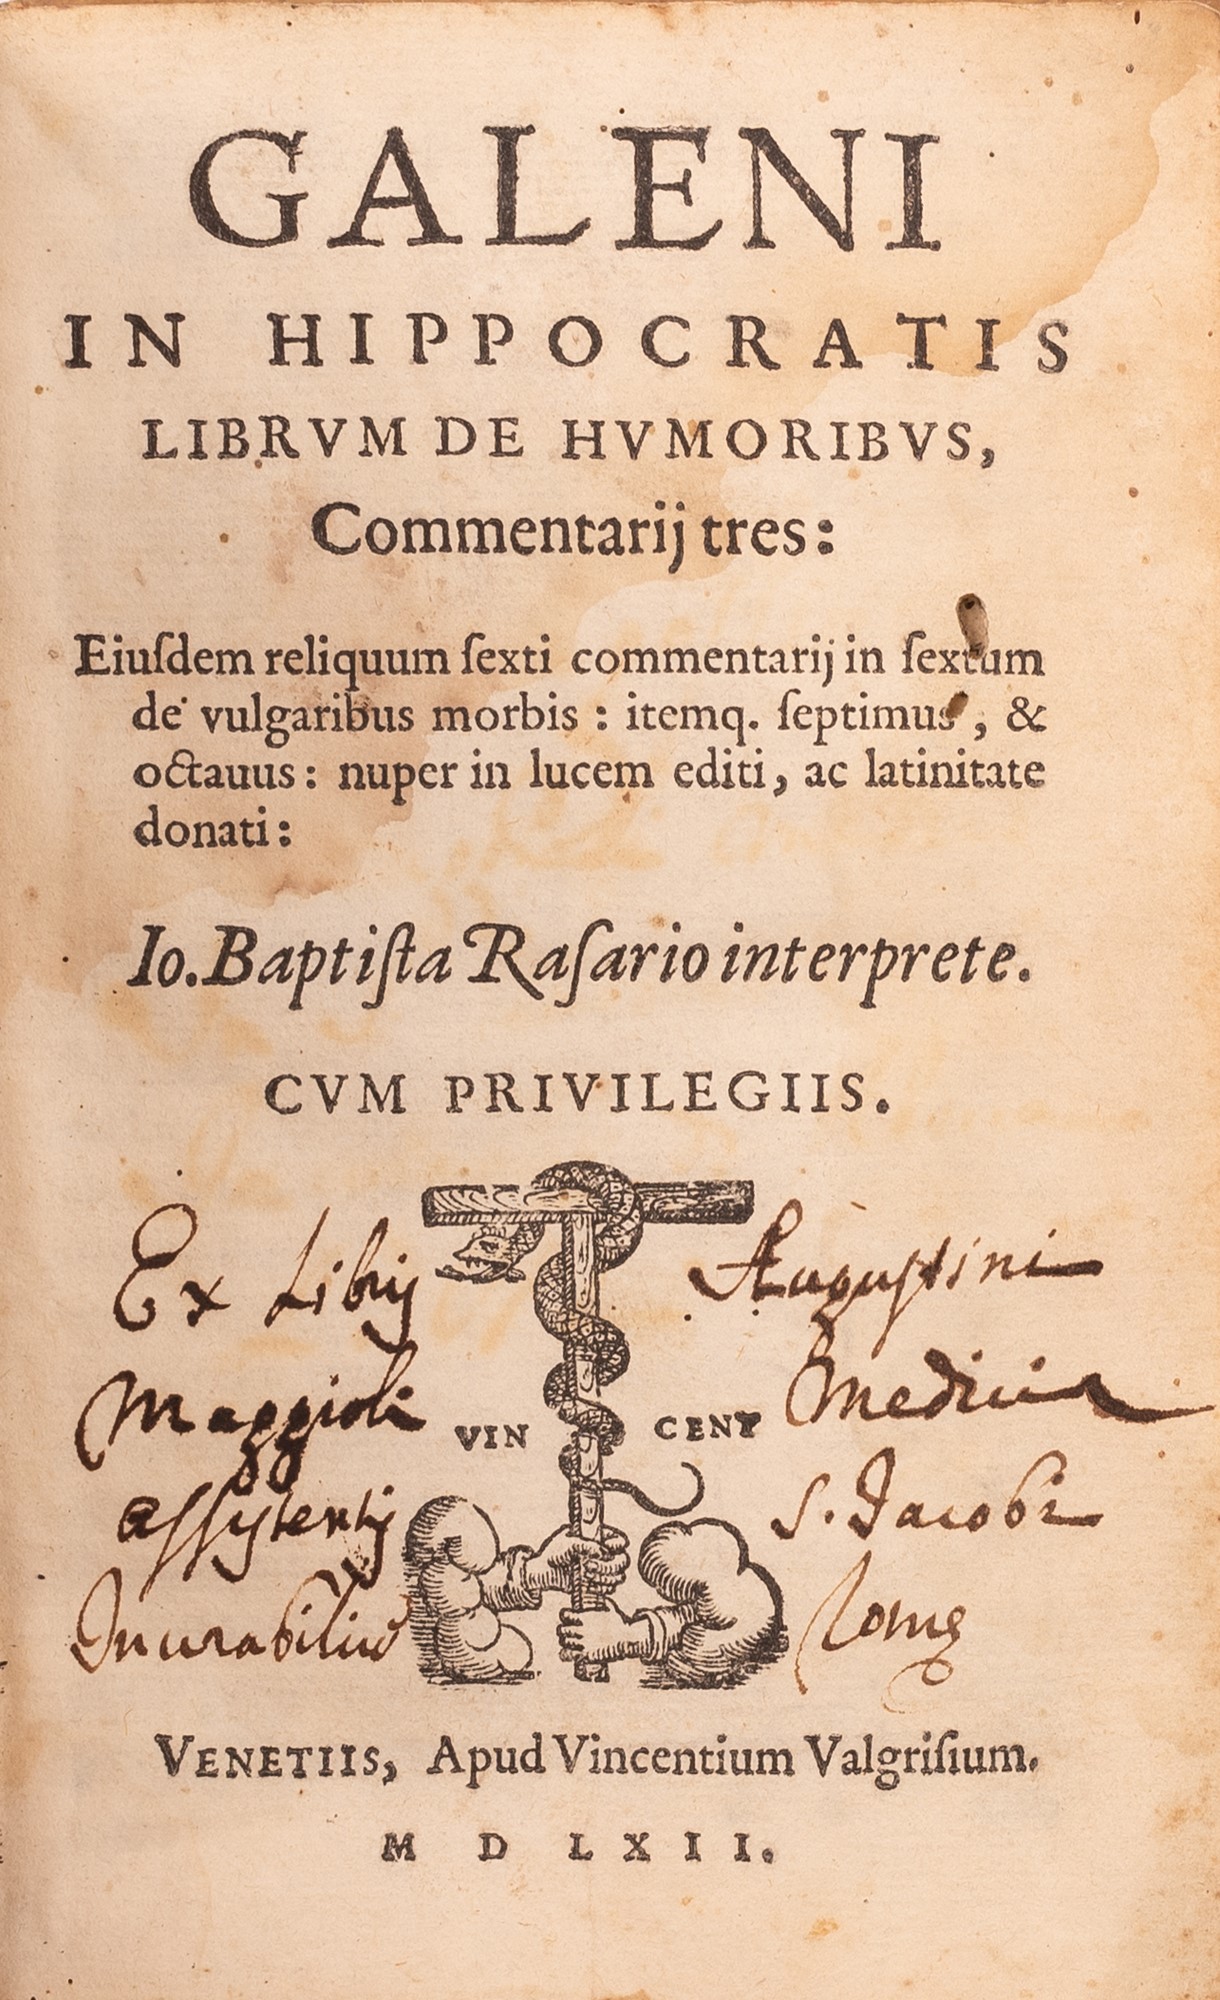 GALENI
IN HIPPOCRATIS
LIBRVM DE HVMORIBVS,
Commentarij tres:
Eiuſdem reliquum ſexti commentarij in ſextum
de vulgaribus morbis : itemq. ſeptimus, &
octauus: nuper in lucem editi, ac latinitate
donati:
Io. Baptiſta Raſario interprete.
CVM PRIVILEGIIS.
Ex Libris Augustini
Maggioli Medici
VIN CENT
assystentis S. Jacobi
Incurabiliu Rome
VENETIIS, Apud Vincentium Valgriſium.
M D LXII.